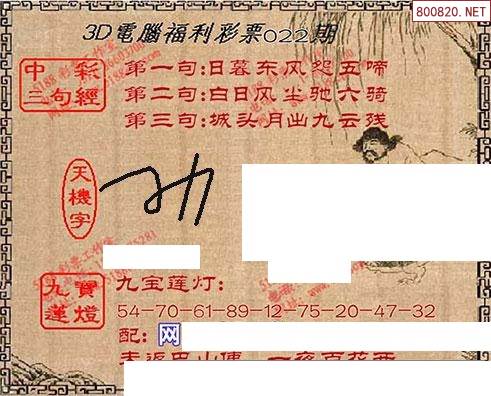 800820.NET
3D電腦福利彩票022期
中彩
三句經
第一句:日暮东风怨五啼
第二句:白日风尘驰六骑
第三句:城头月出九云残
天機字
九寶蓮燈
九宝莲灯:
54-70-61-89-12-75-20-47-32
配: 网